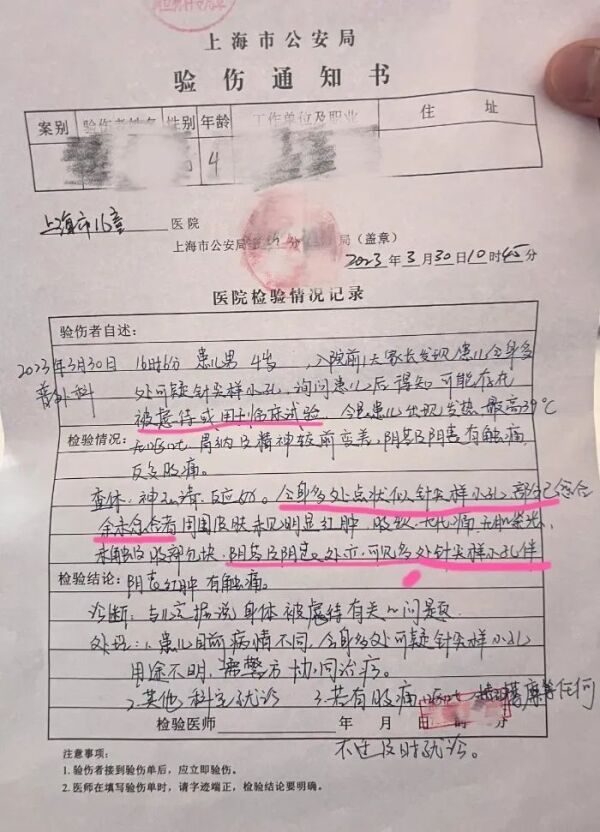 上海市公安局
验伤通知书
案别 验伤者姓名 性别 年龄 工作单位及职业 住址
4
上海市儿童医院
上海市公安局 局（盖章）
2023年3月30日10时45分
医院检验情况记录
验伤者自述：
2023年3月30日 16时6分 患儿男 4岁，入院前1天家长发现患儿全身多
普外科 处可疑针尖样小孔，询问患儿后得知可能存在
被虐待或用于临床试验。今晨患儿出现发热 最高39℃
检验情况： 无呕吐，胃纳及精神较前变差，阴茎及阴囊有触痛
反复腹痛。
查体：神志清，反应好。全身多处点状似针尖样小孔 部分已愈合
余未愈合者周围皮肤未见明显红肿
未触及腹部包块，阴茎及阴囊处亦可见多处针尖样小孔伴
检验结论： 阴囊红肿 有触痛。
诊断：与 身体被虐待有关的问题
处理：1.患儿目前病情不同，全身多处可疑针尖样小孔
用途不明，需警方协同治疗。
2.其他科室就诊 3.若有腹痛 呕吐 等任何
检验医师 年 月 日 时 分
不适及时就诊。
注意事项：
1. 验伤者接到验伤单后，应立即验伤。
2. 医师在填写验伤单时，请字迹端正，检验结论要明确。